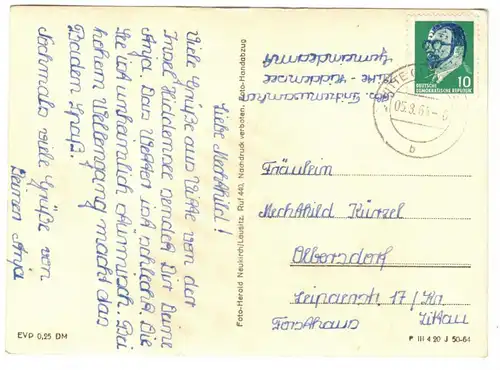 Liebe Mechthild!
Viele Grüße aus Vitte von der
Insel Hiddensee sendet Dir Deine
Anja. Das Wetter ist schlecht. Die
See ist unheimlich stürmisch. Bei
hohem Wellengang macht das
Baden Spaß.
Nochmals viele Grüße von
Deiner Anja
Foto-Herold Neukirch/Lausitz, Ruf 440, Nachdruck verboten, Foto-Handabzug
EVP 0,25 DM
Vitte - Hiddensee
DEUTSCHE
DEMOKRATISCHE REPUBLIK
10
b
Fräulein
Mechthild Kürzel
Olbersdorf
17 / Kr.
Forsthaus Zittau
P III 4 20 J 50-64